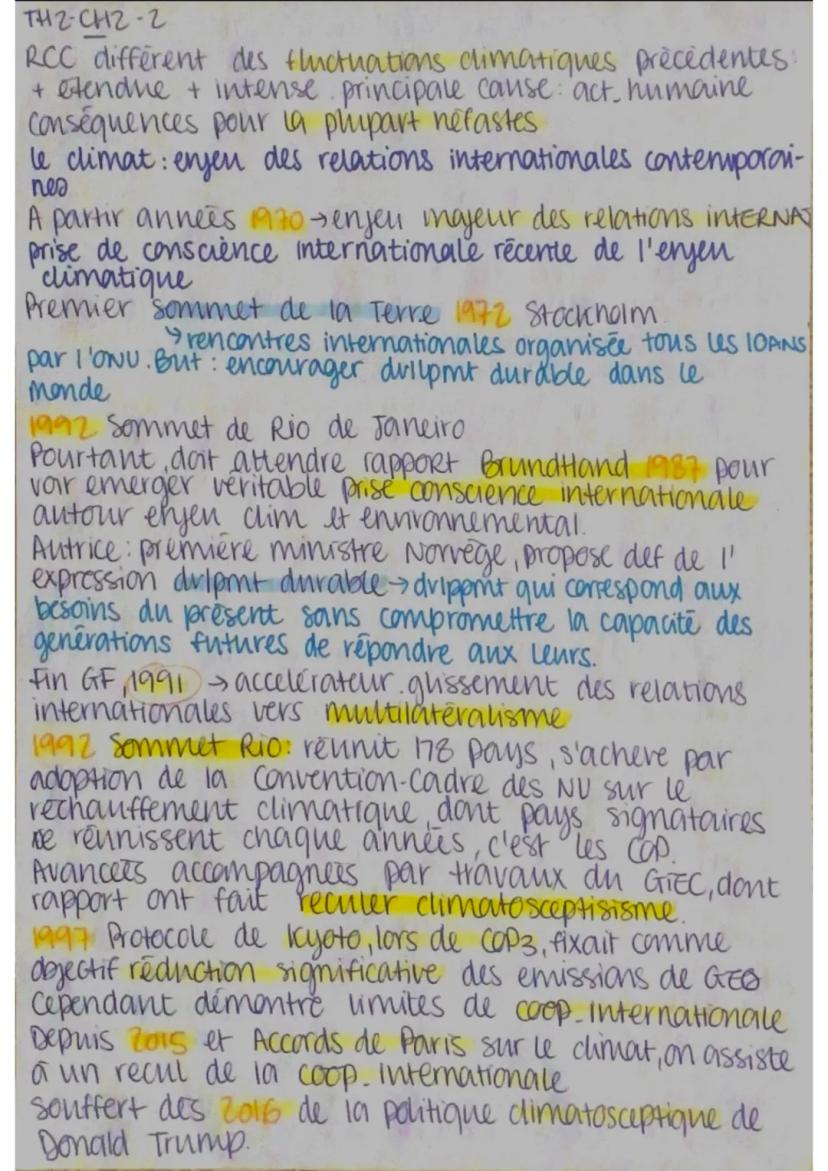 TH2-CH2-2
RCC différent des fluctuations climatiques précédentes:
+ étendue + intense. principale cause: act. humaine
conséquences pour la plupart néfastes
le climat: enjeu des relations internationales contemporai-
nes
A partir années 1970 → enjeu majeur des relations INTERNA
prise de conscience internationale récente de l'enjeu
climatique
Premier sommet de la Terre 1972 Stockholm.
↳ rencontres internationales organisée tous les 10ANS
par l'ONU. But: encourager dvllpmt durable dans le
monde
1992 Sommet de Rio de Janeiro
Pourtant, doit attendre rapport Brundtland 1987 pour
voir emerger véritable prise conscience internationale
autour enjeu clim et environnemental.
Autrice: première ministre Norvège, propose def de l'
expression dvlpmt durable → dvlppmt qui correspond aux
besoins du présent sans compromettre la capacité des
générations futures de répondre aux leurs.
Fin GF, 1991 → accelérateur. glissement des relations
internationales vers multilatéralisme
1992 Sommet Rio: réunit 178 pays, s'achève par
adoption de la Convention-Cadre des NU sur le
réchauffement climatique, dont pays signataires
se réunissent chaque années, c'est les COP.
Avancées accompagnées par travaux du GIEC, dont
rapport ont fait reculer climatosceptisisme.
1997 Protocole de Kyoto, lors de COP3, fixait comme
objectif réduction significative des emissions de GES
Cependant démontré limites de coop. internationale
Depuis 2015 et Accords de Paris sur le climat, on assiste
à un recul de la coop. internationale
souffert dès 2016 de la politique climatosceptique de
Donald Trump.